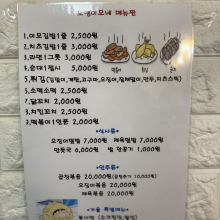 도영이모네 메뉴판
1.이모김밥1줄 2,500원
2.치즈김밥1줄 3,000원
3.라면1그릇 3,000원
4.순대1접시 5,000원
5.튀김(김말이,계란,고구마,오징어,잡채말이,만두,치즈스틱)
6.소떡소떡 2,500원
7.닭꼬치 2,000원
8.치킨꼬치 2,000원
9.떡볶이1컵 2,000원
식사류
오징어덮밥 7,000원 제육덮밥 7,000원
만둣국 6,000원 밥 한공기 1,000원
안주류
곱창볶음 20,000원
오징어볶음 20,000원
제육볶음 20,000원
겨울 특별메뉴